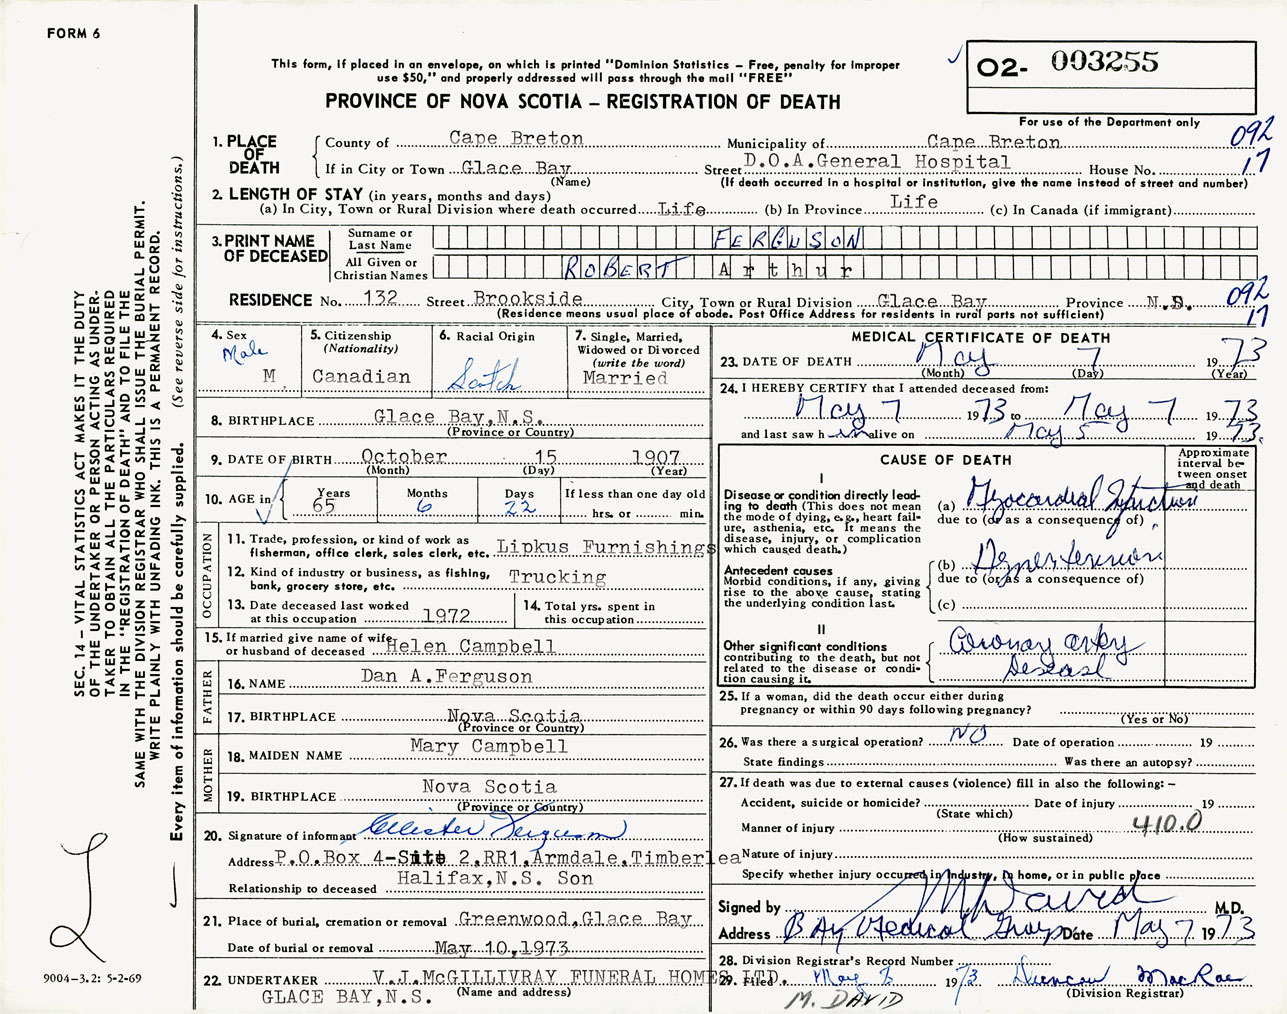 FORM 6
This form, if placed in an envelope, on which is printed "Dominion Statistics – Free, penalty for improper
use $50," and properly addressed will pass through the mail "FREE"
PROVINCE OF NOVA SCOTIA – REGISTRATION OF DEATH
02- 003255
For use of the Department only
1. PLACE OF DEATH
County of Cape Breton Municipality of Cape Breton 092
If in City or Town Glace Bay Street D.O.A.General Hospital House No. 17
(Name) (If death occurred in a hospital or institution, give the name instead of street and number)
2. LENGTH OF STAY (in years, months and days)
(a) In City, Town or Rural Division where death occurred Life (b) In Province Life (c) In Canada (if immigrant)
3. PRINT NAME OF DECEASED
Surname or Last Name FERGUSON
All Given or Christian Names ROBERT Arthur
RESIDENCE No. 132 Street Brookside City, Town or Rural Division Glace Bay Province N.S. 092
(Residence means usual place of abode. Post Office Address for residents in rural parts not sufficient) 17
4. Sex Male M
5. Citizenship (Nationality) Canadian
6. Racial Origin Scotch
7. Single, Married, Widowed or Divorced (write the word) Married
8. BIRTHPLACE Glace Bay,N.S.
(Province or Country)
9. DATE OF BIRTH October 15 1907
(Month) (Day) (Year)
10. AGE in Years 65 Months 6 Days 22 If less than one day old hrs. or min.
OCCUPATION
11. Trade, profession, or kind of work as fisherman, office clerk, sales clerk, etc. Lipkus Furnishings
12. Kind of industry or business, as fishing, bank, grocery store, etc. Trucking
13. Date deceased last worked at this occupation 1972
14. Total yrs. spent in this occupation
15. If married give name of wife or husband of deceased Helen Campbell
FATHER
16. NAME Dan A.Ferguson
17. BIRTHPLACE Nova Scotia
(Province or Country)
MOTHER
18. MAIDEN NAME Mary Campbell
19. BIRTHPLACE Nova Scotia
(Province or Country)
20. Signature of informant Ferguson
Address P.O.Box 4-Site 2,RR1,Armdale,Timberlea
Halifax,N.S. Son
Relationship to deceased
21. Place of burial, cremation or removal Greenwood,Glace Bay
Date of burial or removal May 10,1973
22. UNDERTAKER V.J.McGILLIVRAY FUNERAL HOMES LTD.
GLACE BAY,N.S. (Name and address)
MEDICAL CERTIFICATE OF DEATH
23. DATE OF DEATH May 7 1973
(Month) (Day) (Year)
24. I HEREBY CERTIFY that I attended deceased from:
May 7 1973 to May 7 1973
and last saw h im alive on May 5 1973.
CAUSE OF DEATH
Approximate interval between onset and death
I
Disease or condition directly leading to death (This does not mean the mode of dying, e.g., heart failure, asthenia, etc. It means the disease, injury, or complication which caused death.)
(a) Myocardial Infarction
due to (or as a consequence of)
Antecedent causes
Morbid conditions, if any, giving rise to the above cause, stating the underlying condition last.
(b) Hypertension
due to (or as a consequence of)
(c)
II
Other significant conditions
contributing to the death, but not related to the disease or condition causing it.
Coronary artery
Disease
25. If a woman, did the death occur either during
pregnancy or within 90 days following pregnancy?
(Yes or No)
26. Was there a surgical operation? NO Date of operation 19
State findings Was there an autopsy?
27. If death was due to external causes (violence) fill in also the following: –
Accident, suicide or homicide? Date of injury 19
(State which)
Manner of injury 410.0
(How sustained)
Nature of injury
Specify whether injury occurred in Industry, in home, or in public place
Signed by M David M.D.
Address BAy Medical Group Date May 7 1973
28. Division Registrar's Record Number
29. Filed May 8 1973 Duncan MacRae
(Division Registrar)
M. DAVID
SEC. 14 – VITAL STATISTICS ACT MAKES IT THE DUTY
OF THE UNDERTAKER OR PERSON ACTING AS UNDER-
TAKER TO OBTAIN ALL THE PARTICULARS REQUIRED
IN THE "REGISTRATION OF DEATH" AND TO FILE THE
SAME WITH THE DIVISION REGISTRAR WHO SHALL ISSUE THE BURIAL PERMIT.
WRITE PLAINLY WITH UNFADING INK. THIS IS A PERMANENT RECORD.
Every item of information should be carefully supplied. (See reverse side for instructions.)
L
9004-3.2: 5-2-69